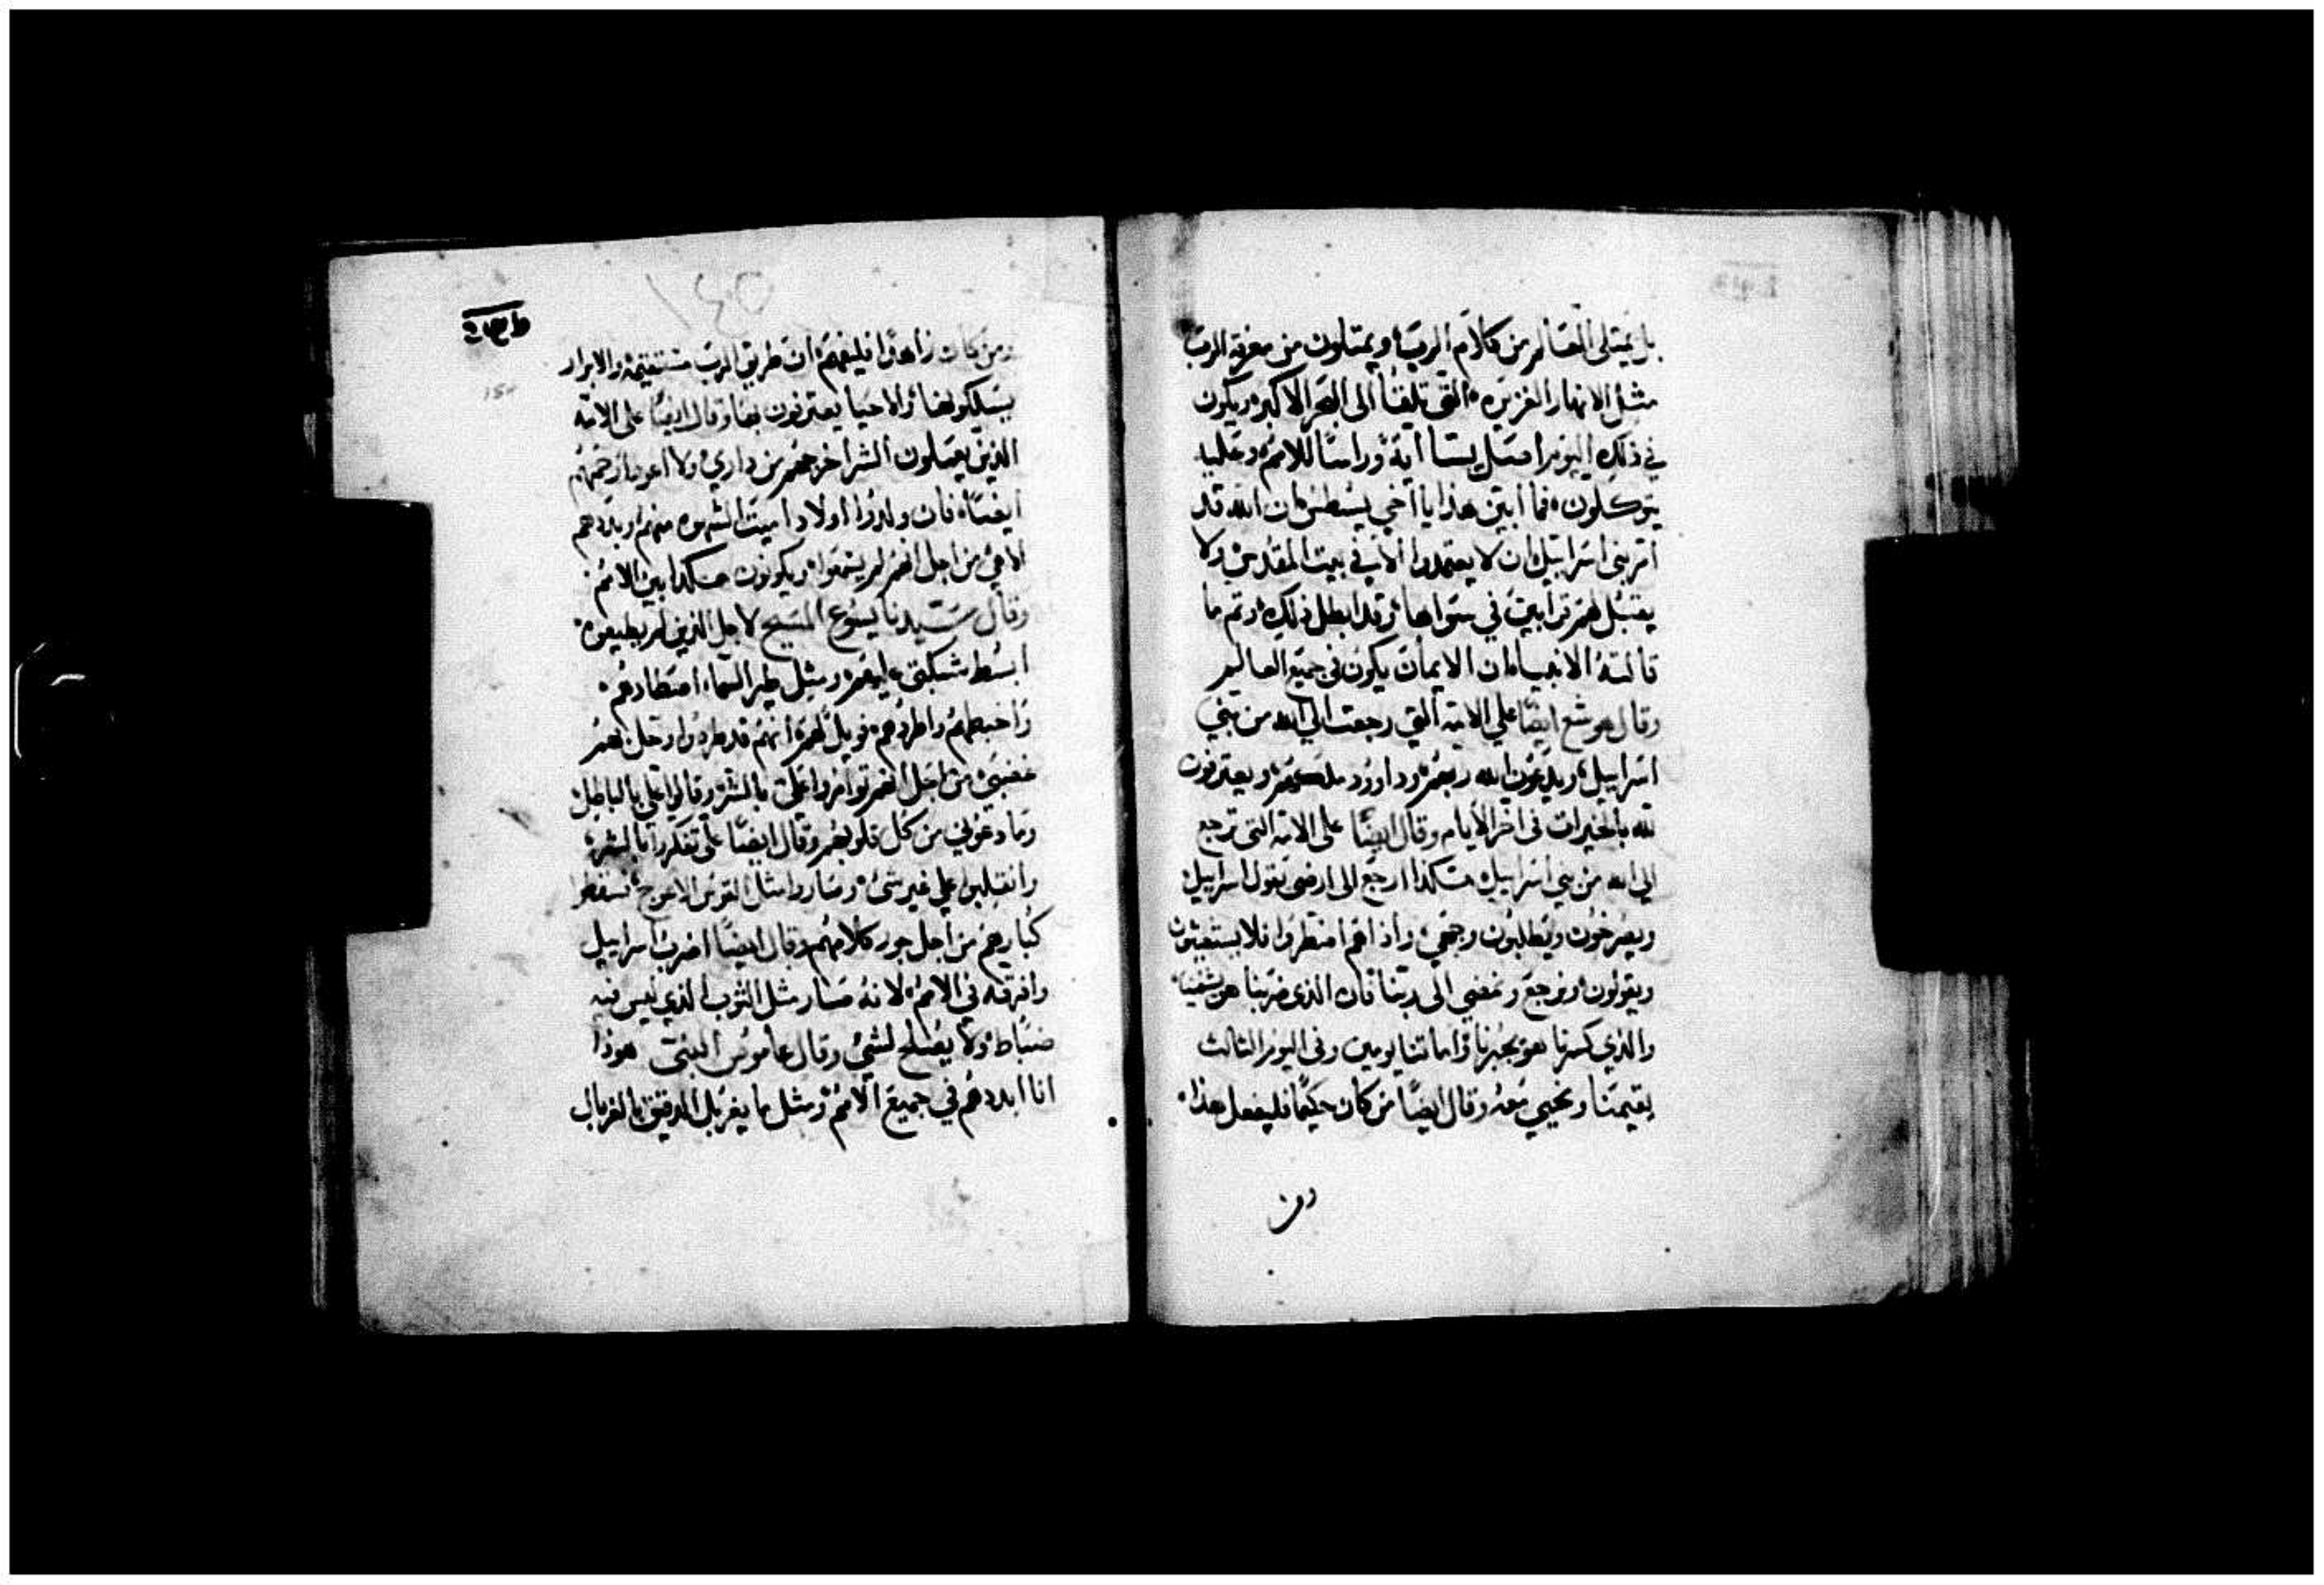 بل يمتلى العالم من كلام الرب ويمتلون من معرفة الرب
مثل الانهار الغزيره التى تلقا الى البحر الاكبر ويكون
في ذلك اليوم اصل يسا اية وراسا للامم وعليه
يتوكلون فما ابين هذا يا اخي يسطس ان الله قد
امر بنى اسراييل ان لا يعتمدوا الا في بيت المقدس ولا
يقبل لهم قرابين في سواها وقد ابطل ذلك وتم ما
قالته الانبياء ان الايمان يكون في جميع العالم
وقال هوشع ايضا على الامة التي رجعت الى الله من بني
اسراييل ويدعون الله ربهم وداوود ملكهم ويعترفون
لله بالخيرات في اخر الايام وقال ايضا على الامة التي ترجع
الى الله من بني اسراييل هكذا ارجع الى ارضى تقول اسراييل
ويصرخون ويطلبون وجهي واذا هم اضطروا فلا يستغيثون
ويقولون نرجع ونمضي الى ربنا فان الذى ضربنا هو يشفينا
والذي كسرنا هو يجبرنا واماتنا يومين وفى اليوم الثالث
يقيمنا ونحيي معه وقال ايضا من كان حكيما فليفعل هذا
ومن
ومن كان زاهدا فليفهم ان طريق الرب مستقيمة والابرار
يسلكونها والاحيا يعترفون بها وقال ايضا على الامة
الذين يعملون الشر اخرجهم من داري ولا اعود ارحمهم
ايضا فان ولدوا اولادا اميت الشهوه منهم ويبددهم
الاهي من اجل انهم لم يسمعوا ويكونون هكذا بين الامم
وقال سيدنا يسوع المسيح لاجل الذين لم يطيعوه
ابسط شبكتي عليهم ومثل طير السماء اصطادهم
واضبطهم واطردهم فويل لهم انهم قد طردوا وحل بهم
غضبي من اجل انهم توامروا علي بالشر وقالوا علي بالباطل
وما دعوني من كل قلوبهم وقال ايضا علي تفكروا بالشر
وانقلبوا علي غير شي وصاروا مثل القوس الاعوج فسقطوا
كبارهم من اجل جور كلامهم وقال ايضا اضرب اسراييل
وافرقه في الامم لانه صار مثل الثوب الذي ليس فيه
ضباط ولا يصلح لشي وقال عاموس النبي هوذا
انا ابددهم في جميع الامم ومثل ما يغربل الدقيق بالغربال